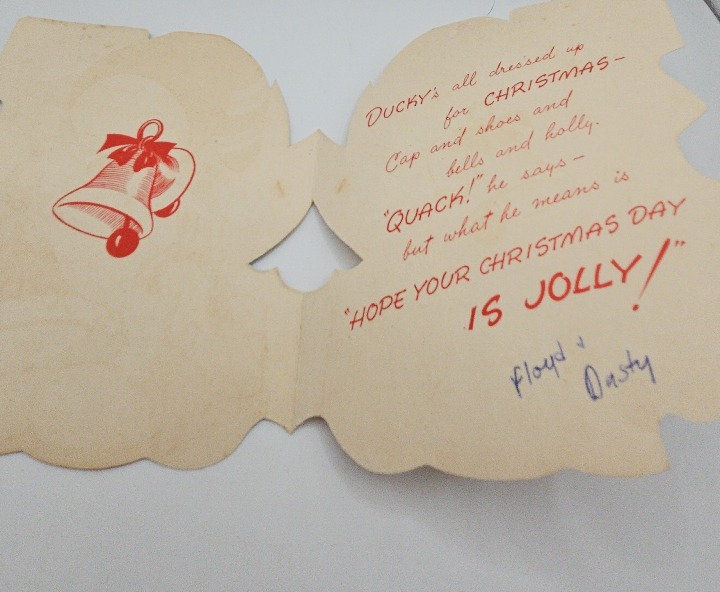 DUCKY's all dressed up
for CHRISTMAS—
Cap and shoes and
bells and holly.
"QUACK!" he says—
but what he means is
"HOPE YOUR CHRISTMAS DAY
IS JOLLY!"
Floyd +
Dusty